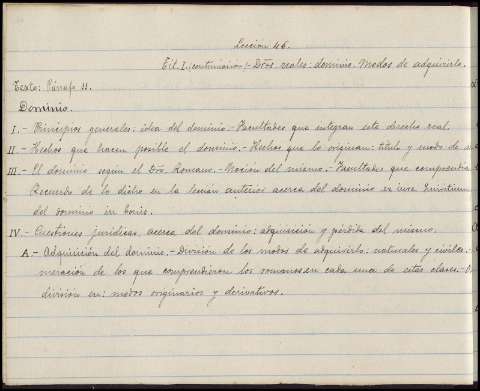 Lección 46.
Tít. I (continuación).- Dros reales: dominio. Modos de adquirirlo.
Texto: Párrafo 11.
Dominio.
I.- Principios generales: idea del dominio.- Facultades que integran este derecho real.
II.- Hechos que hacen posible el dominio.- Hechos que lo originan: título y modo de
III.- El dominio según el Dro Romano.- Noción del mismo.- Facultades que comprendía
Recuerdo de lo dicho en la lección anterior acerca del dominio ex iure Quiritium
del dominio in bonis.
IV.- Cuestiones jurídicas acerca del dominio: adquisición y pérdida del mismo.
A.- Adquisición del dominio.- División de los modos de adquirirlo: naturales y civiles.-
meración de los que comprendieron los romanos en cada una de estas clases.-
división en: modos originarios y derivativos.